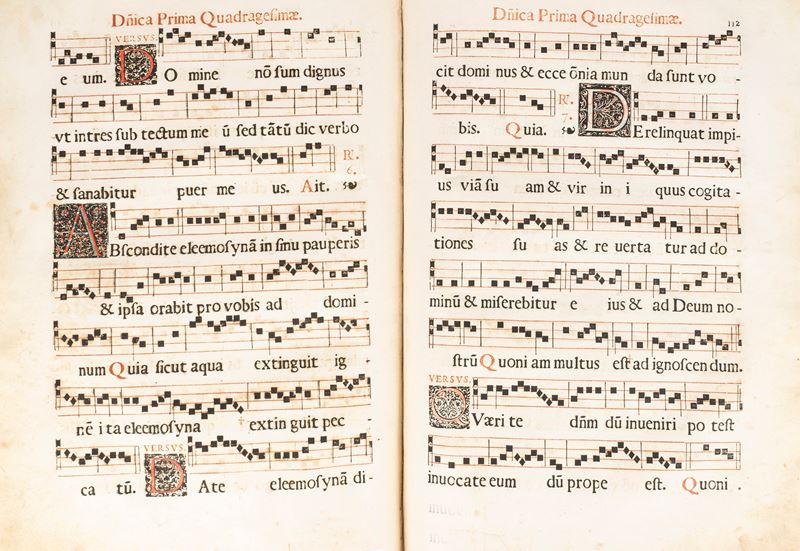 Dñica Prima Quadragesimæ.
VERSVS.
e um. DO mine nõ sum dignus
vt intres sub tectum me ũ sed tãtũ dic verbo
R̃.
6.
& sanabitur puer me us. Ait.
ABscondite eleemosynã in sinu pauperis
& ipsa orabit pro vobis ad domi -
num Quia sicut aqua extinguit ig -
nẽ i ta eleemosyna extin guit pec -
VERSVS.
ca tũ. DAte eleemosynã di -
Dñica Prima Quadragesimæ.
112
cit domi nus & ecce õnia mun da sunt vo -
R̃.
7.
bis. Quia. DErelinquat impi -
us viã su am & vir in i quus cogita -
tiones su as & re uerta tur ad do -
minũ & miserebitur e ius & ad Deum no -
strũ Quoni am multus est ad ignoscen dum.
VERSVS.
QVæri te dñm dũ inueniri po test
inuocate eum dũ prope est. Quoni .